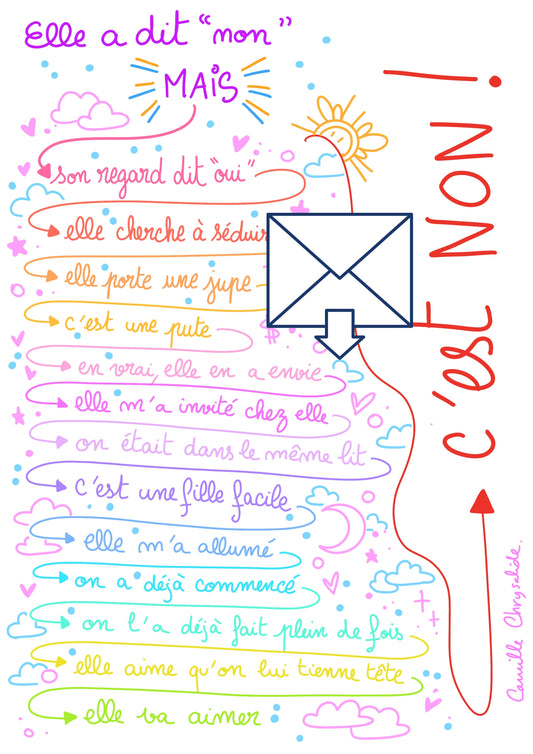 Elle a dit "non"
MAIS
son regard dit "oui"
elle cherche à séduir
elle porte une jupe
c'est une pute
en vrai, elle en a envie
elle m'a invité chez elle
on était dans le même lit
c'est une fille facile
elle m'a allumé
on a déjà commencé
on l'a déjà fait plein de fois
elle aime qu'on lui tienne tête
elle va aimer
c'est NON !
Camille Chrysalide.